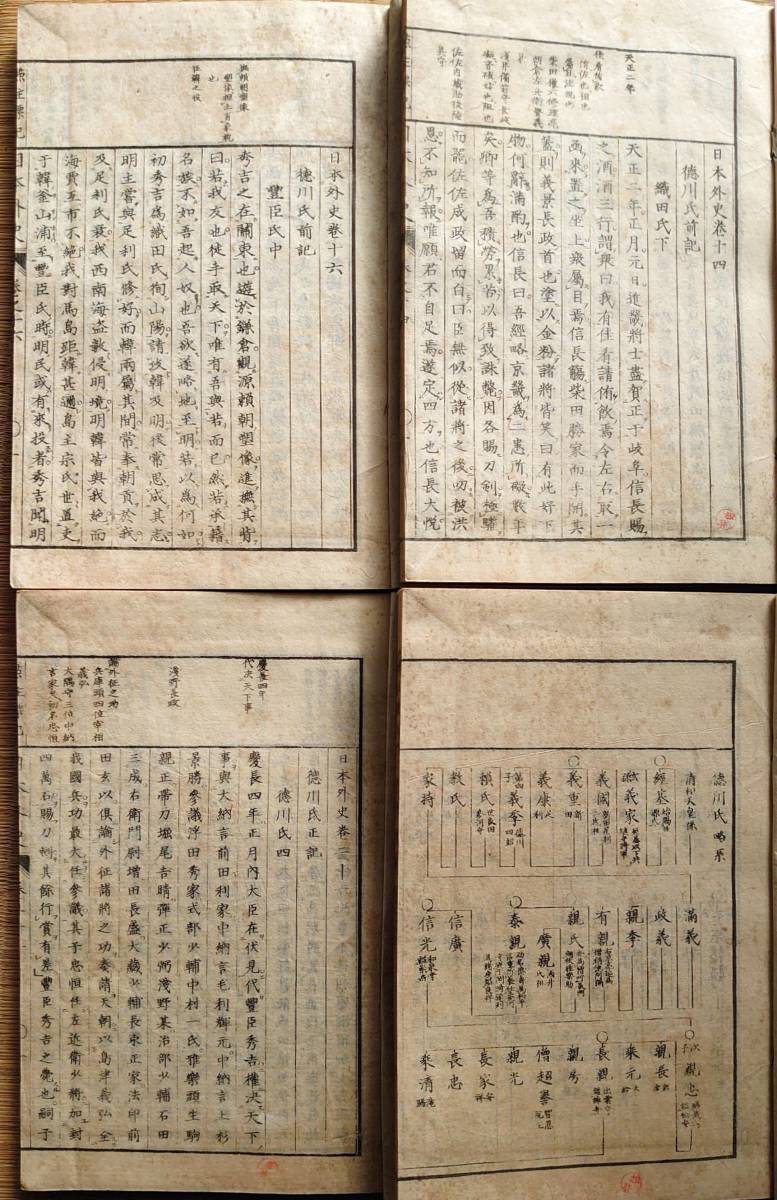 日本外史卷十四
德川氏前記
織田氏下
天正二年正月元日近畿將士盡賀正于岐阜信長賜
之酒酒三行謂衆曰我有佳肴請侑飲焉令左右取一
函來置之坐上衆屬目焉信長觴柴田勝家而手開其
蓋則義景長政首也塗以金粉諸將皆笑曰有此好下
物何辭滿酌也信長曰吾經略京畿爲二患所礙數年
矣卿等爲吾積勞累苦以得致誅斃因各賜刀劍極驩
而罷佐佐成政留而白曰臣無似從諸將之後叨被洪
恩不知所報唯願君不自足焉遂定四方也信長大悅
天正二年
日本外史卷十六
德川氏前記
豐臣氏中
秀吉之在關東也遊於鎌倉觀源賴朝塑像進撫其背
曰若我友也徒手取天下唯有吾與若而已然若承藉
名族不如吾起人奴也吾欲遂略地至明若以爲何如
初秀吉爲織田氏徇山陽請攻韓及明後常思成其志
明主嘗與足利氏修好而韓兩屬其間常奉朝貢於我
及足利氏衰我西南海盜數侵明境明韓皆與我絕而
海賈互市不絕我對馬島距韓甚邇島主宗氏世置吏
于韓釜山浦至豐臣氏時明民或有來投者秀吉聞明
撫賴朝塑像
日本外史
德川氏略系
清和天皇
經基
滿義
義家
政義
義國
親季
義重
有親
義康
親氏
義季
廣親
賴氏
泰親
教氏
信廣
家持
信光
親忠
親長
乘元
長親
親房
僧超譽
親光
長家
長忠
乘清
日本外史卷二十
德川氏正記
德川氏四
慶長四年正月內大臣在伏見代豐臣秀吉權決天下
事與大納言前田利家中納言毛利輝元中納言上杉
景勝參議浮田秀家式部少輔中村一氏雅樂頭生駒
親正帶刀堀尾吉晴彈正少弼淺野某治部少輔石田
三成右衛門尉增田長盛大藏少輔長束正家法印前
田玄以俱論外征諸將之功奏請天朝以島津義弘全
我國兵功最大任參議其子忠恒任左近衛少將加封
四萬石賜刀劍其餘行賞有差豐臣秀吉之薨也嗣子
慶長四年
代決天下事
淺野長政
論外征之功